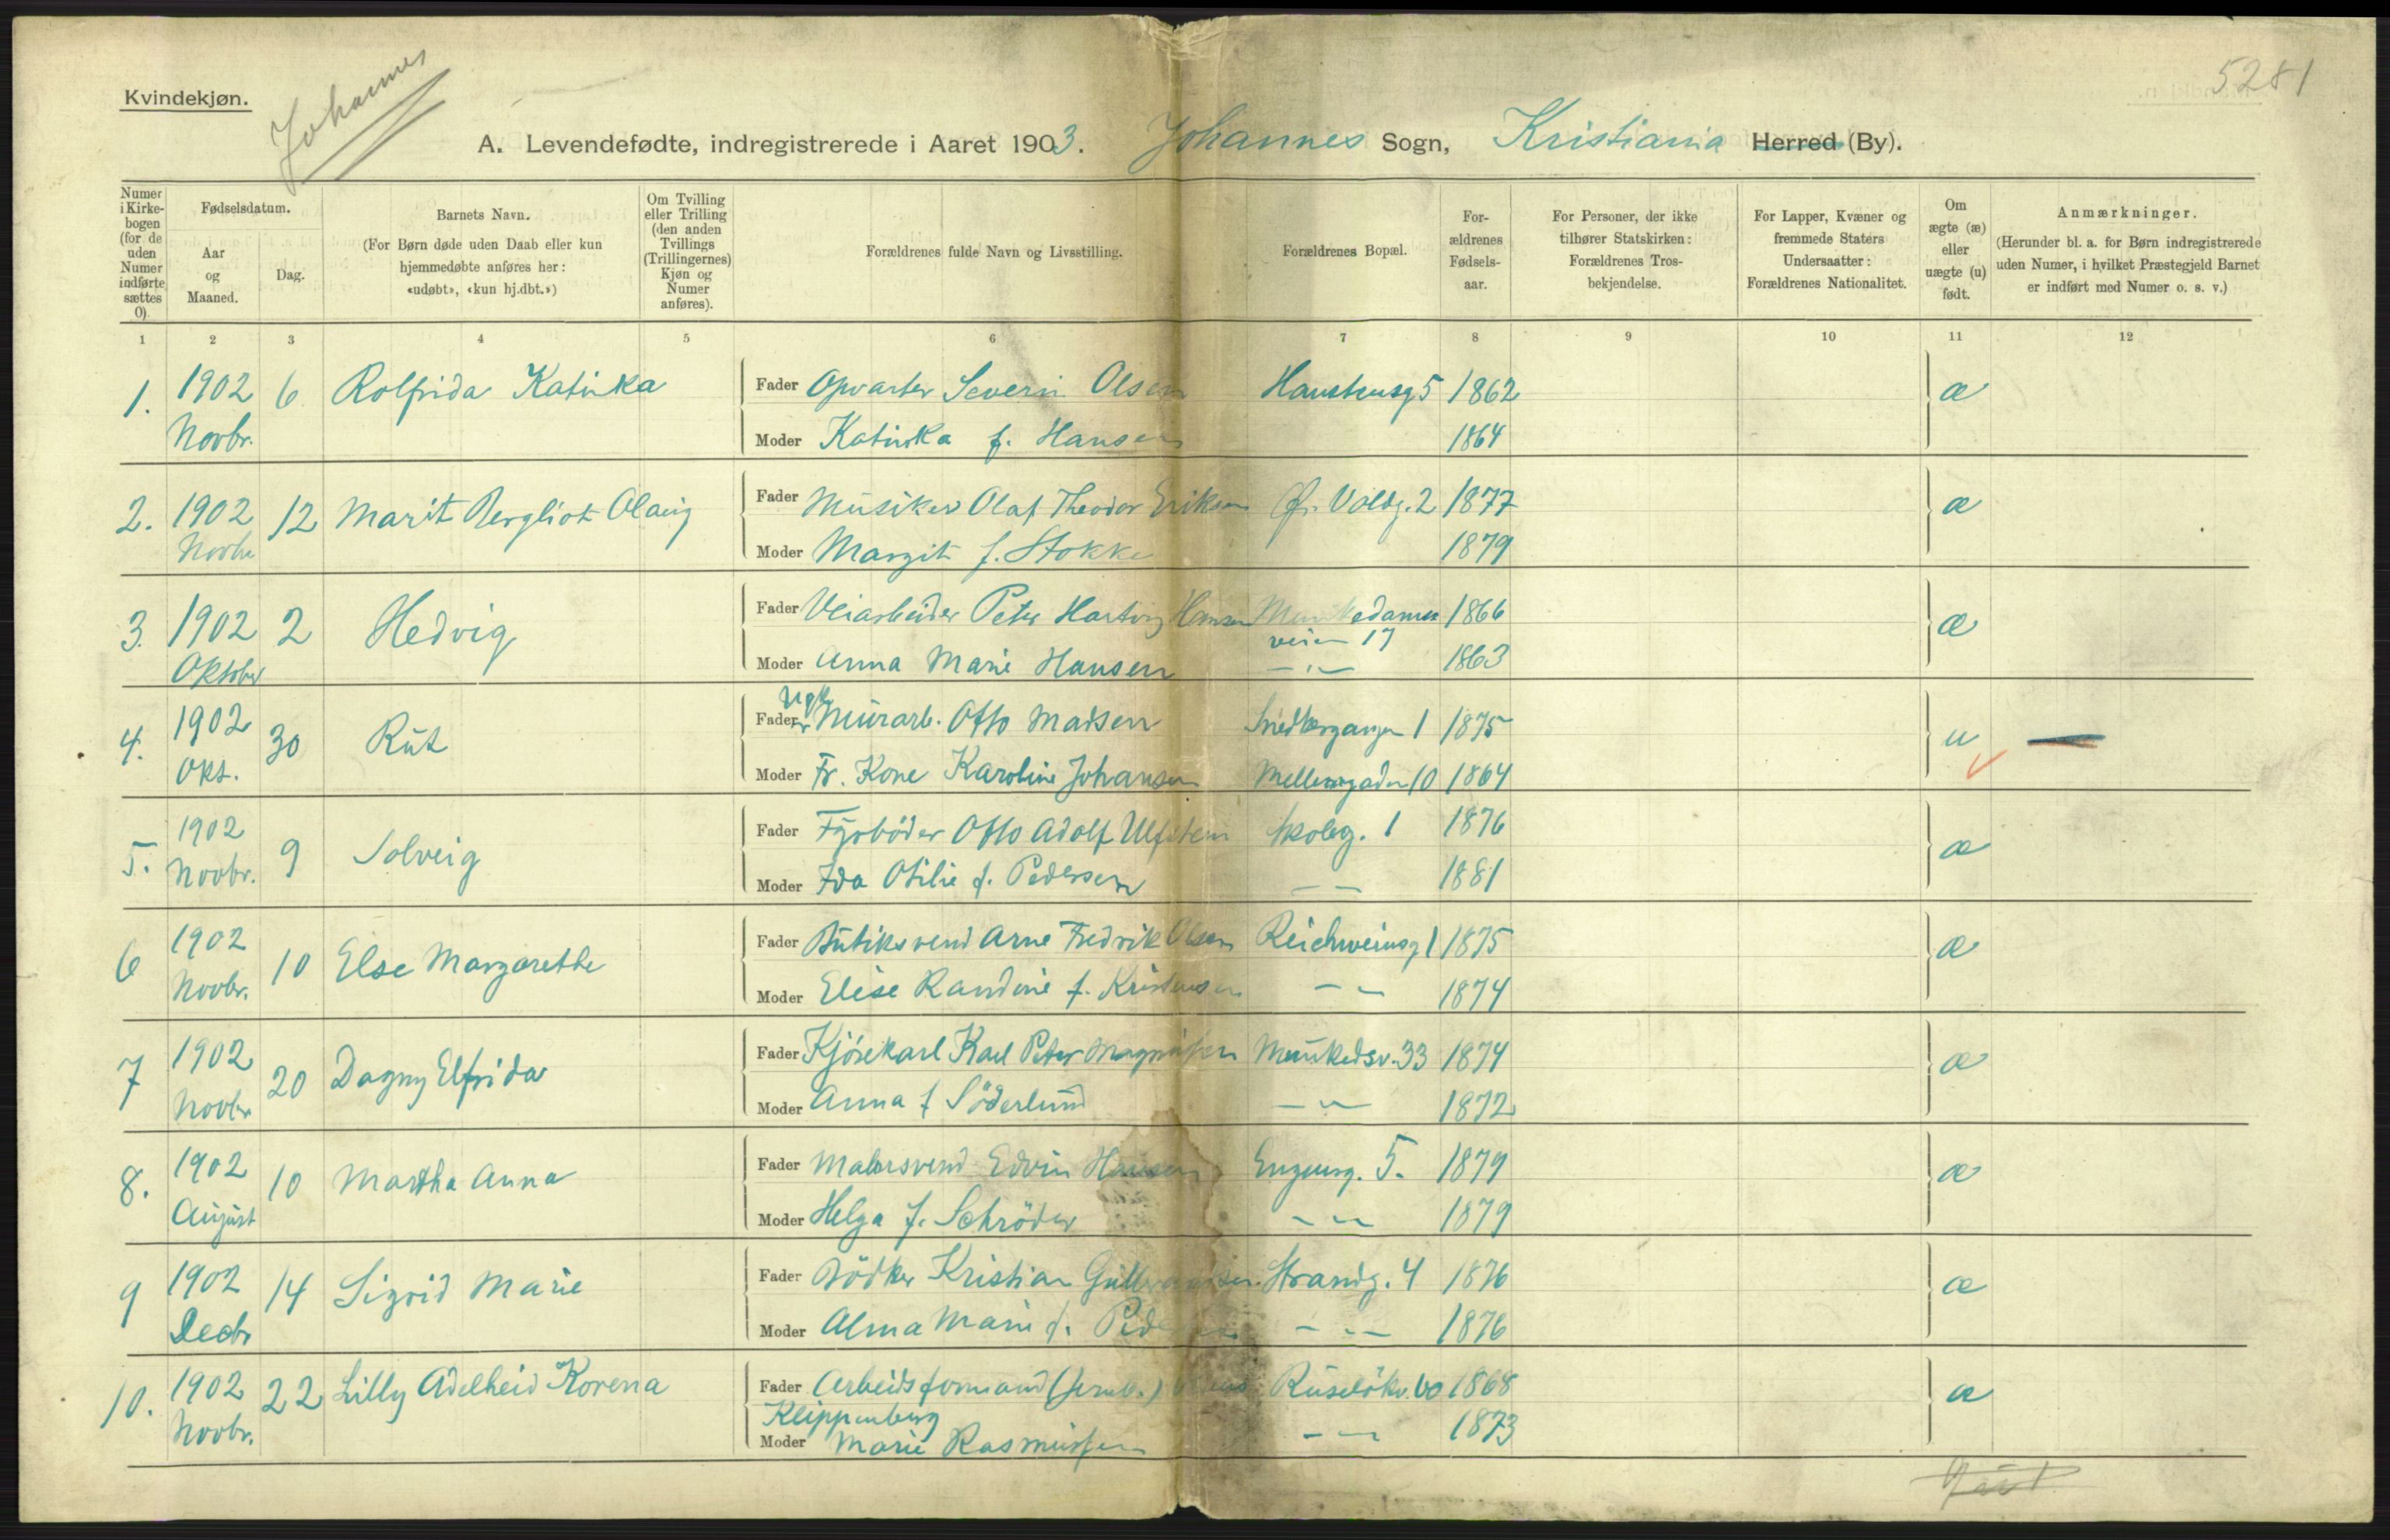 5281
Kvindekjøn.
Johannes
A. Levendefødte, indregistrerede i Aaret 1903. Johannes Sogn, Kristiania Herred (By).
Numer i Kirkebogen (for de uden Numer indførte sættes 0).
Fødselsdatum.
Aar og Maaned.
Dag.
Barnets Navn.
(For Børn døde uden Daab eller kun hjemmedøbte anføres her: «udøbt», «kun hj.dbt.»)
Om Tvilling eller Trilling (den anden Tvillings (Trillingernes) Kjøn og Numer anføres).
Forældrenes fulde Navn og Livsstilling.
Forældrenes Bopæl.
Forældrenes Fødselsaar.
For Personer, der ikke tilhører Statskirken: Forældrenes Trosbekjendelse.
For Lapper, Kvæner og fremmede Staters Undersaatter: Forældrenes Nationalitet.
Om ægte (æ) eller uægte (u) født.
Anmærkninger.
(Herunder bl. a. for Børn indregistrerede uden Numer, i hvilket Præstegjeld Barnet er indført med Numer o. s. v.)
1 2 3 4 5 6 7 8 9 10 11 12
1. 1902 Novbr. 6 Rolfrida Katinka Fader Opvarter Severin Olsen 1862 æ
Moder Katinka f. Hansen 1864
2. 1902 Novbr 12 Marit Bergliot Olaug Fader Musiker Olaf Theodor Eriksen Voldg. 2 1877 æ
Moder Margit f. Stokke 1879
3. 1902 Oktober 2 Hedvig Fader Veiarbeider Peter Hartvig Hansen Munkedams 1866 æ
veien 17
Moder Anna Marie Hansen 1863
4. 1902 Okt. 30 Rut Fader Murarb. Otto Madsen Snedkergangen 1 1875 u
Moder Fr. Kone Karoline Johansen Mellemgaden 10 1864
5. 1902 Novbr. 9 Solveig Fader Fyrbøder Otto Adolf Skoleg. 1 1876 æ
Moder Ida Otilie f. Pedersen 1881
6 1902 Novbr. 10 Else Margarethe Fader Butiksvend Arne Fredrik Olsen Reichweinsg 1 1875 æ
Moder Elise Randine f. Kristensen 1874
7 1902 Novbr 20 Dagny Elfrida Fader Kjørekarl Karl Peter Magnussen Munkedsv. 33 1874 æ
Moder Anna f Söderlund 1872
8. 1902 August 10 Martha Anna Fader Malersvend Edvin Hansen Engens. 5. 1879 æ
Moder Helga f. Schröder 1879
9 1902 Decbr 14 Sigrid Marie Fader Bödker Kristian Gulbrandsen Strandg. 4 1876 æ
Moder Alma Marie f. 1876
10. 1902 Novbr. 22 Lilly Adelheid Korena Fader Arbeidsformand Ruselökv. 60 1868 æ
Klippenberg
Moder Marie Rasmussen 1873